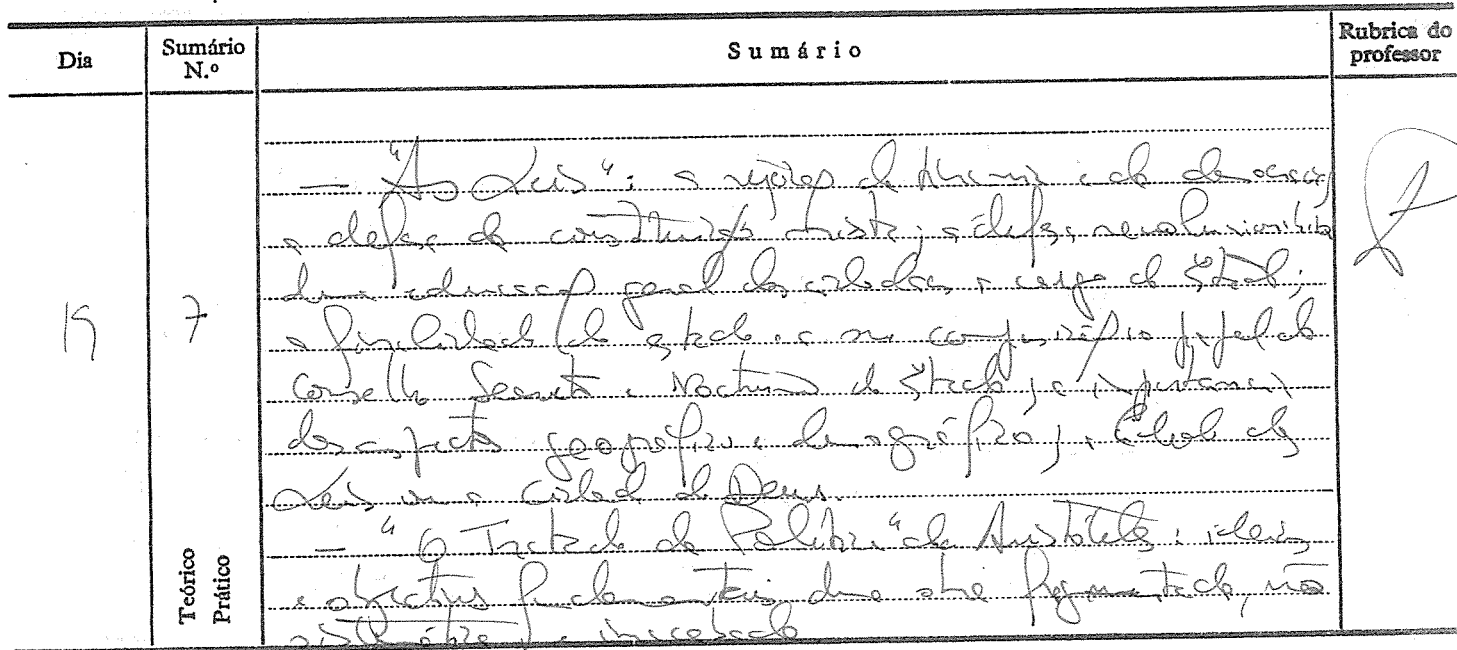 Dia
Sumário N.º
Sumário
Rubrica do professor
— "As Leis": a rejeição da tirania e da democracia,
a defesa da constituição mista; a defesa revolucionária
duma educação geral dos cidadãos a cargo do Estado;
a finalidade do estado e a sua composição papel do
Conselho Secreto e Nocturno do Estado; a importancia
dos aspectos geográfico e demográfico; a Cidade das
Leis ou a Cidade de Deus.
— "O Tratado da Politica" de Aristóteles: ideias
e objectivos fundamentais duma obra fragmentada, não
sistemática e inacabada
19
7
Teórico
Prático